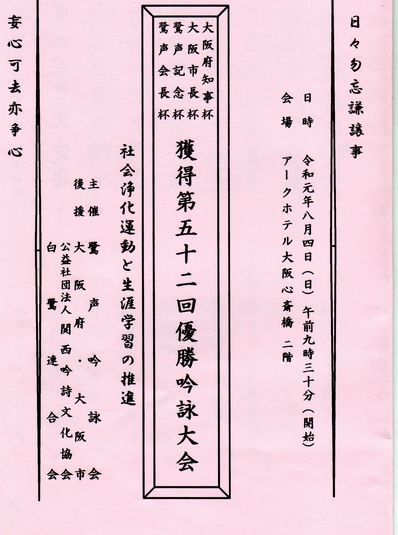 日々勿忘謙譲事
日時　令和元年八月四日（日）午前九時三十分（開始）
会場　アークホテル大阪心斎橋　二階
大阪府知事杯
大阪市長杯
鷺声記念杯
鷺声会長杯
獲得第五十二回優勝吟詠大会
社会浄化運動と生涯学習の推進
主催　鷺声吟詠会
後援　大阪府・大阪市
公益社団法人　関西吟詩文化協会
白鷺連合会
妄心可去亦争心